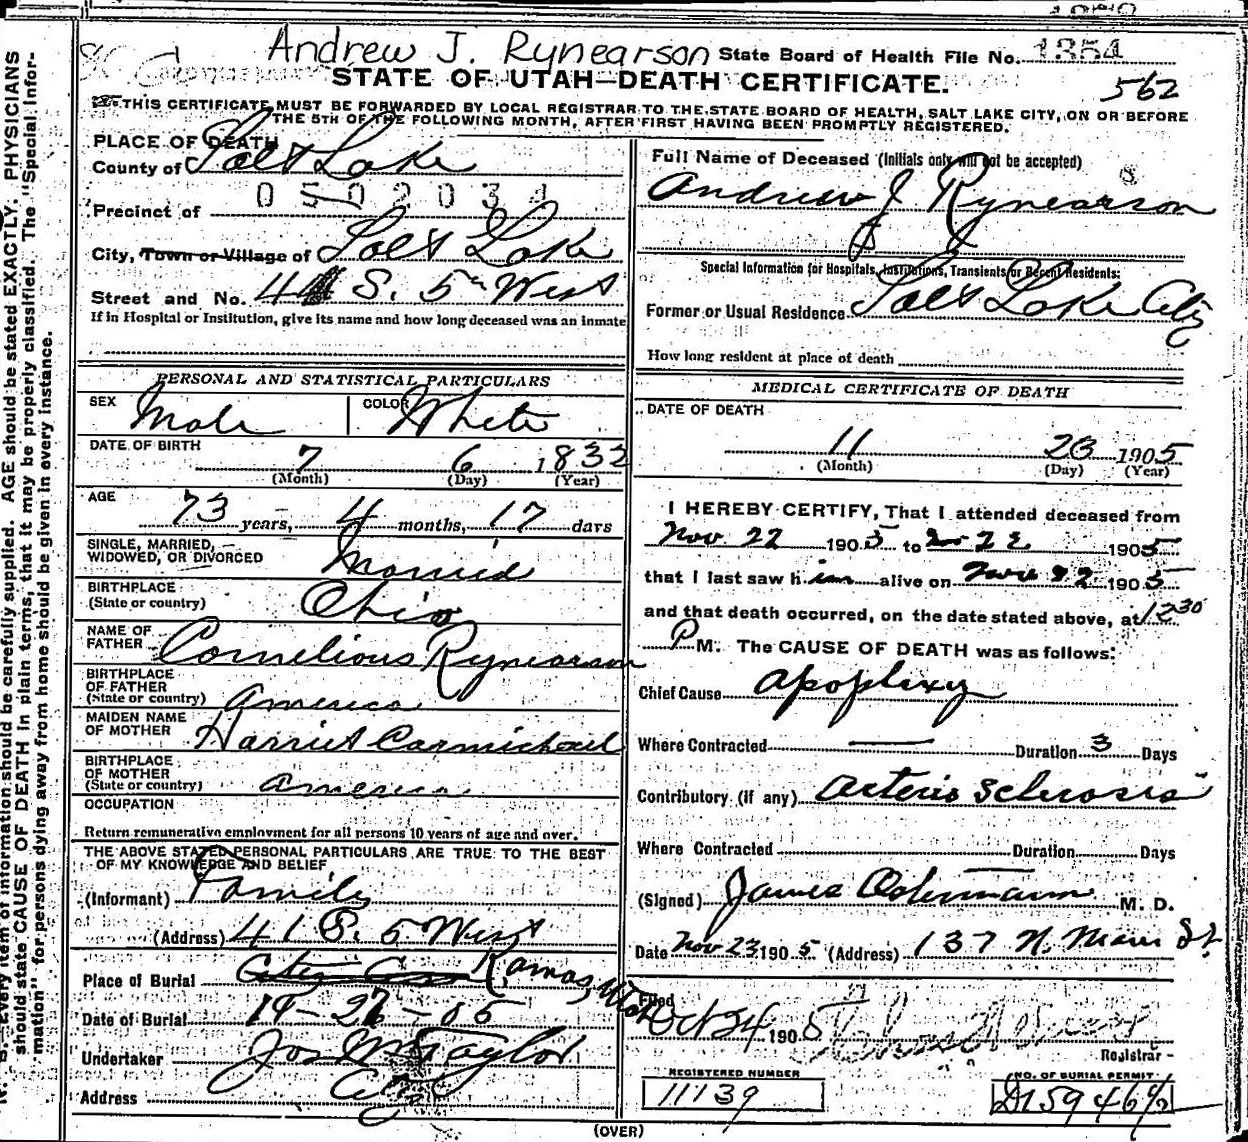 Andrew J. Rynearson State Board of Health File No. 1354
STATE OF UTAH—DEATH CERTIFICATE.
562
THIS CERTIFICATE MUST BE FORWARDED BY LOCAL REGISTRAR TO THE STATE BOARD OF HEALTH, SALT LAKE CITY, ON OR BEFORE
THE 5TH OF THE FOLLOWING MONTH, AFTER FIRST HAVING BEEN PROMPTLY REGISTERED.
PLACE OF DEATH
County of Salt Lake
Precinct of
City, Town or Village of Salt Lake
Street and No. 41 S. 5th West
If in Hospital or Institution, give its name and how long deceased was an inmate
PERSONAL AND STATISTICAL PARTICULARS
SEX Male COLOR White
DATE OF BIRTH
7 6 1832
(Month) (Day) (Year)
AGE
73 years, 4 months, 17 days
SINGLE, MARRIED,
WIDOWED, OR DIVORCED Married
BIRTHPLACE
(State or country) Ohio
NAME OF
FATHER Cornelious Rynearson
BIRTHPLACE
OF FATHER
(State or country) America
MAIDEN NAME
OF MOTHER Harriet Carmichael
BIRTHPLACE
OF MOTHER
(State or country) America
OCCUPATION
Return remunerative employment for all persons 10 years of age and over.
THE ABOVE STATED PERSONAL PARTICULARS ARE TRUE TO THE BEST
OF MY KNOWLEDGE AND BELIEF
(Informant) Family
(Address) 41 S. 5 West
Place of Burial City Cem Kamas, Utah
Date of Burial
Undertaker Jos Wm Taylor
Address City
Full Name of Deceased (Initials only will not be accepted)
Andrew J Rynearson
Special Information for Hospitals, Institutions, Transients or Recent Residents:
Former or Usual Residence Salt Lake City
How long resident at place of death
MEDICAL CERTIFICATE OF DEATH
DATE OF DEATH
11 23 1905
(Month) (Day) (Year)
I HEREBY CERTIFY, That I attended deceased from
Nov 22 1905 to Nov 22 1905
that I last saw him alive on Nov 22 1905
and that death occurred, on the date stated above, at 12 30
P M. The CAUSE OF DEATH was as follows:
Chief Cause apoplexy
Where Contracted — Duration 3 Days
Contributory (if any) arterio sclerosis
Where Contracted Duration — Days
(Signed) James Ostermann M. D.
Date Nov 23 1905 (Address) 137 N. Main St.
Filed Oct 24 1905
Registrar
REGISTERED NUMBER
11139
NO. OF BURIAL PERMIT
(OVER)
N. B. Every item of information should be carefully supplied. AGE should be stated EXACTLY. PHYSICIANS
should state CAUSE OF DEATH in plain terms, that it may be properly classified. The "Special Infor-
mation" for persons dying away from home should be given in every instance.